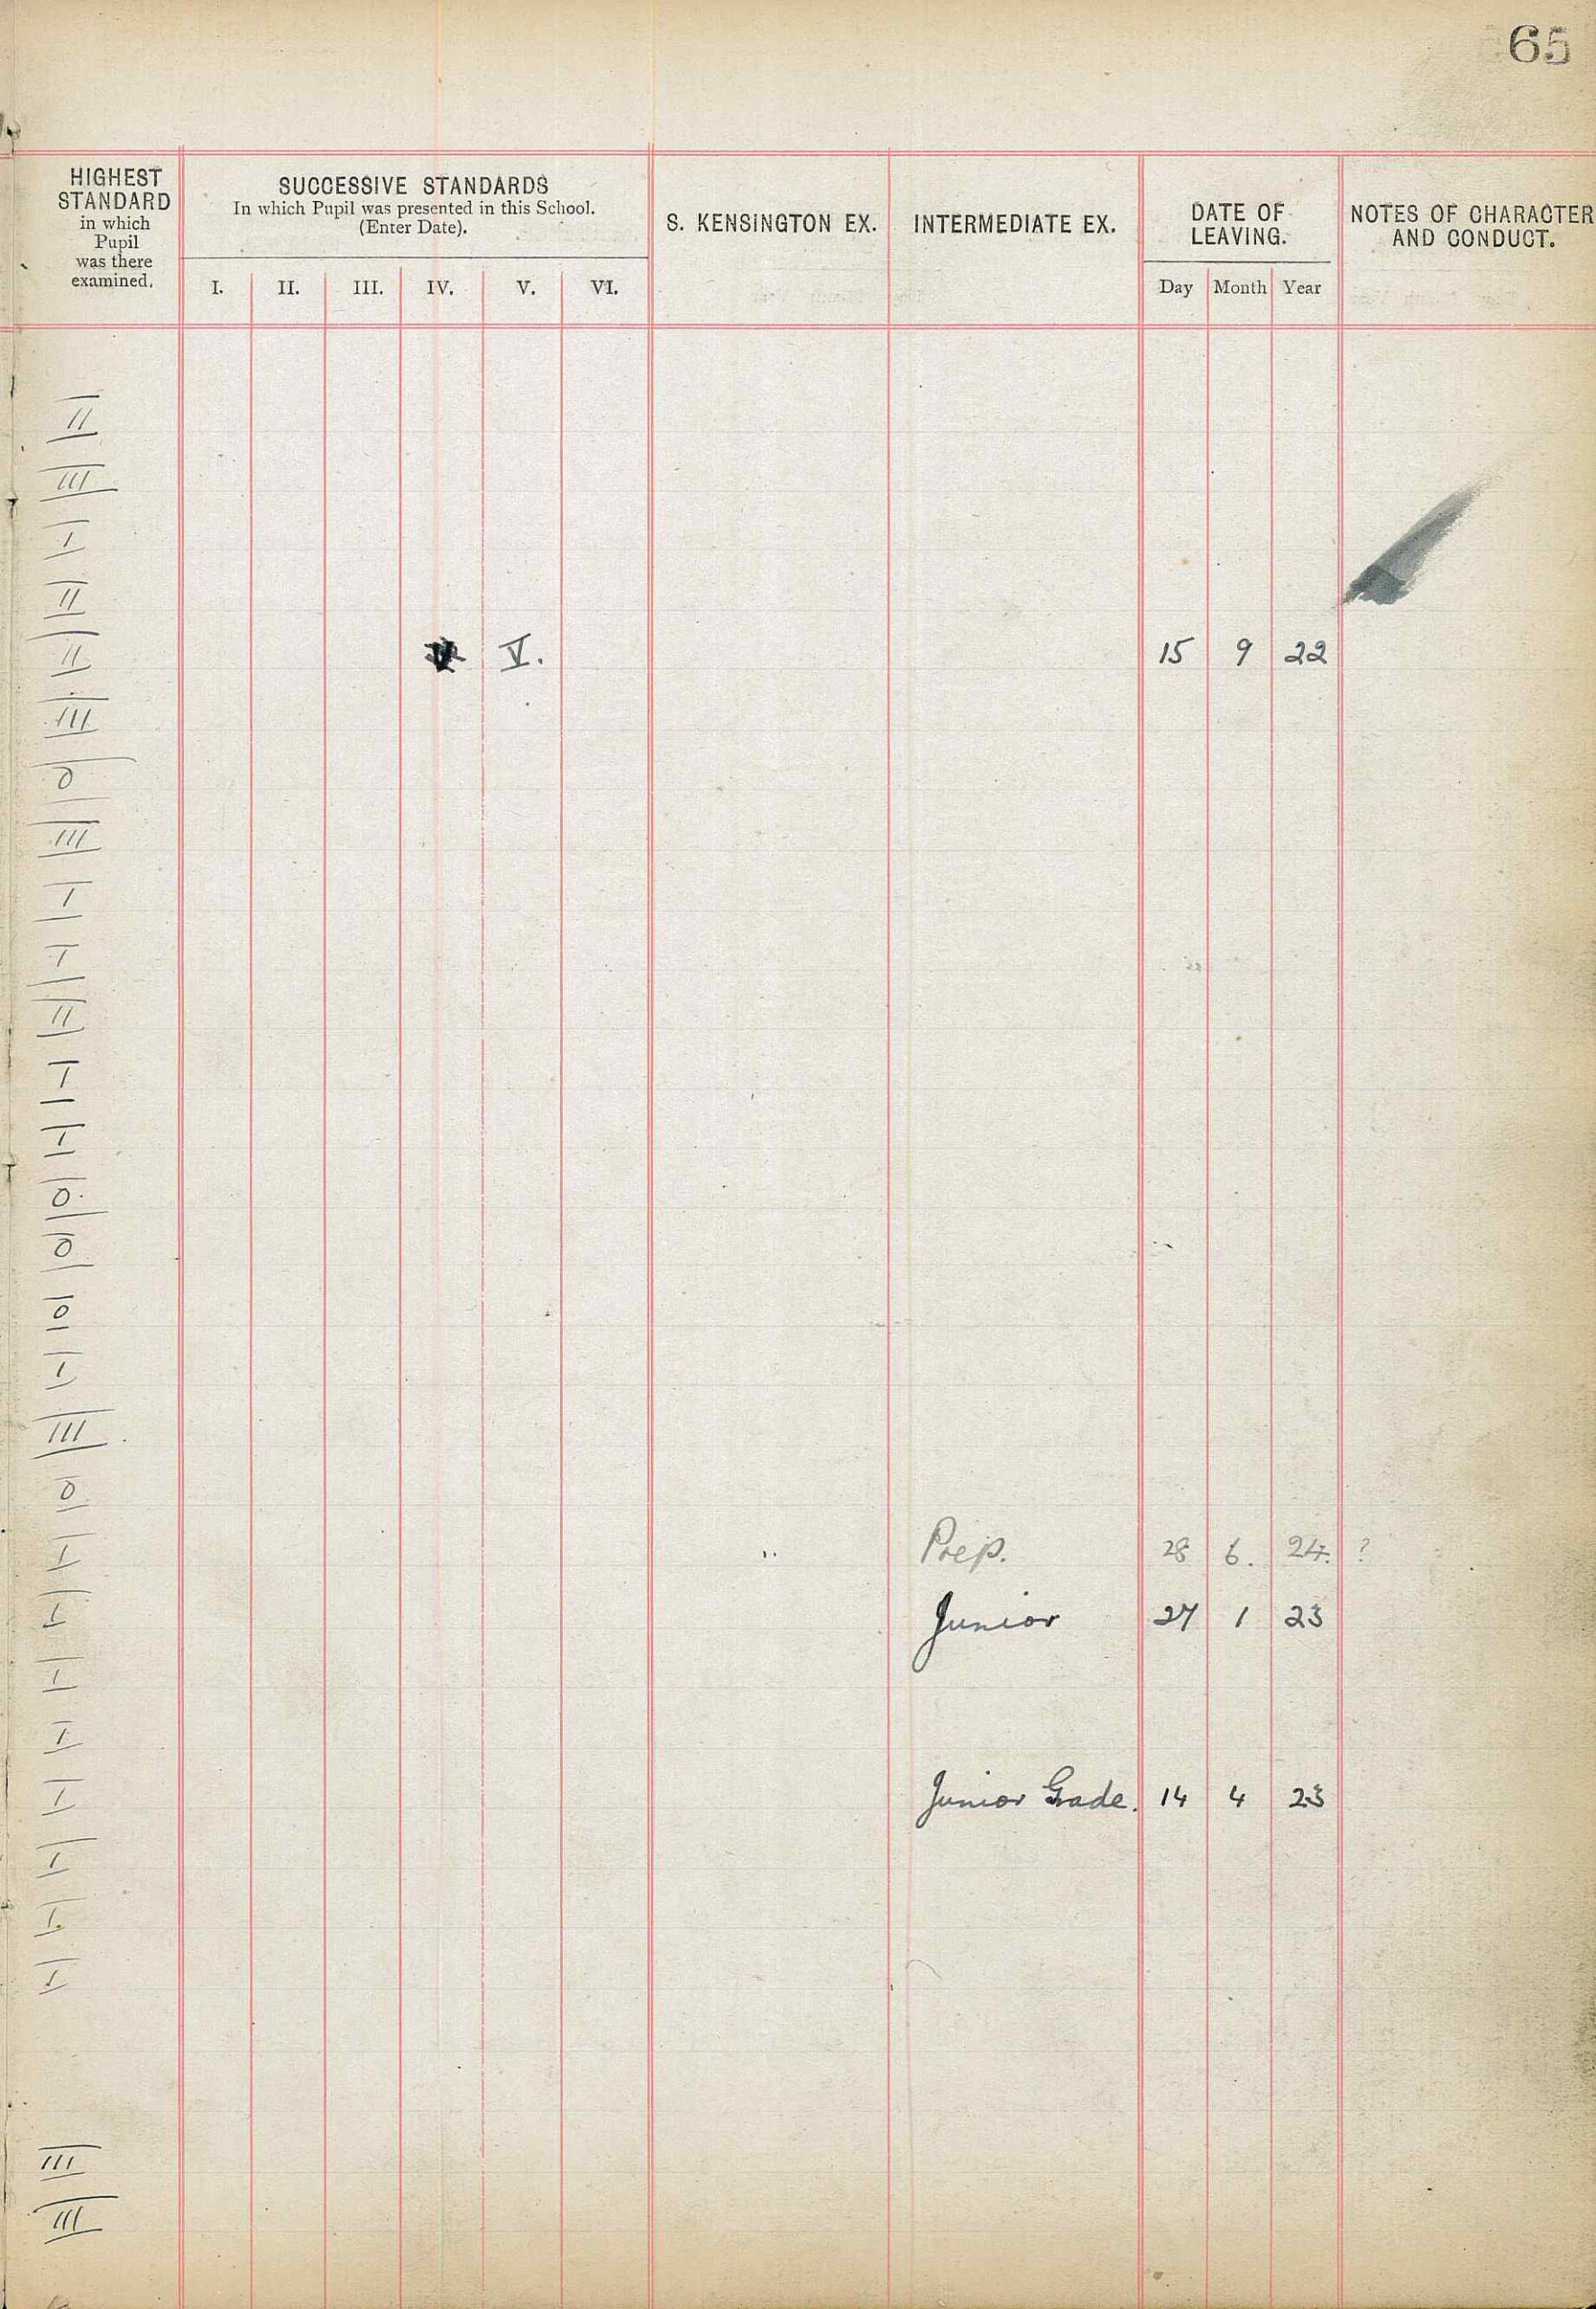 65
HIGHEST STANDARD in which Pupil was there examined.
SUCCESSIVE STANDARDS
In which Pupil was presented in this School.
(Enter Date).
I. II. III. IV. V. VI.
S. KENSINGTON EX.
INTERMEDIATE EX.
DATE OF LEAVING.
Day Month Year
NOTES OF CHARACTER AND CONDUCT.
II
III
I
II
II V. 15 9 22
III
0
III
I
I
II
I
I
0
0
0
I
III
0
I Prep. 28 6. 24. ?
I Junior 27 1 23
I
I
I Junior Grade. 14 4 23
I
I
I
III
III